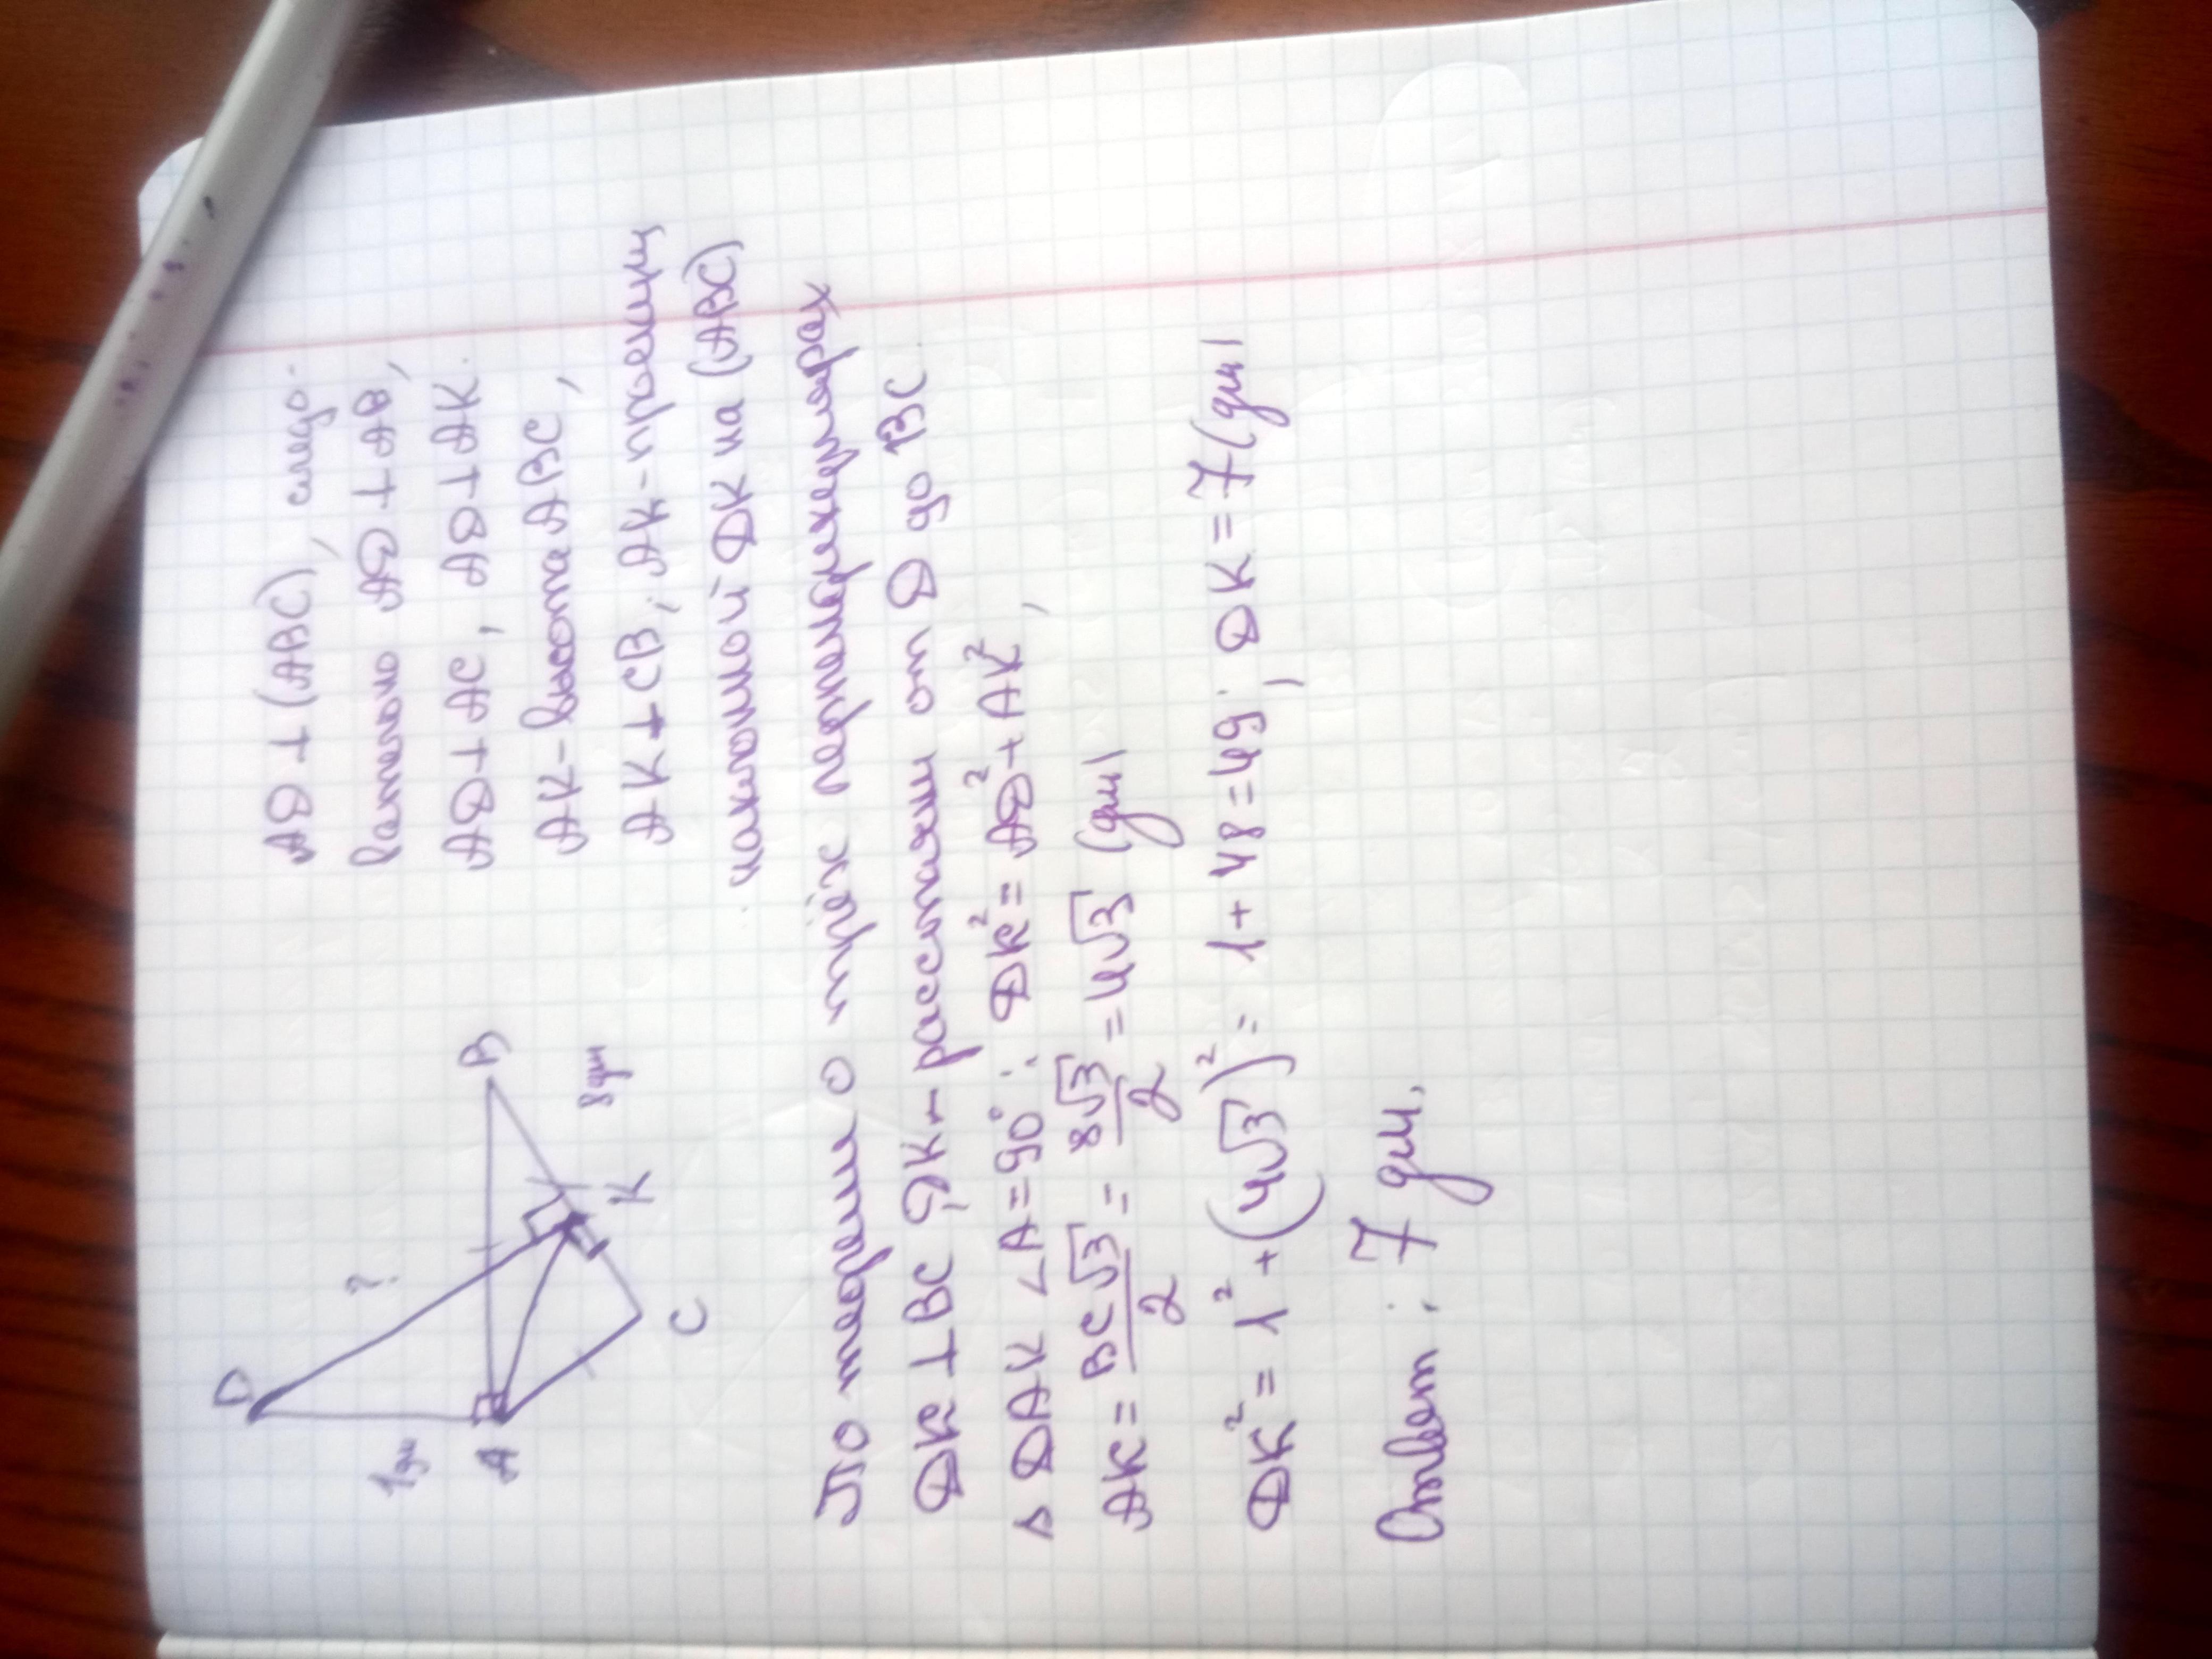 D
?
1дм
A
B
8дм
K
C
AD ⊥ (ABC), следо-
вательно AD ⊥ AB,
AD ⊥ AC, AD ⊥ AK.
AK - высота ABC,
AK ⊥ CB; AK - проекция
наклонной DK на (ABC)
По теореме о трёх перпендикулярах
DK ⊥ BC DK - расстояни от D до BC
△ DAK ∠A = 90°: DK² = AD² + AK²,
AK = BC√3/2 = 8√3/2 = 4√3 (дм)
DK² = 1² + (4√3)² = 1 + 48 = 49; DK = 7(дм)
Ответ: 7 дм.